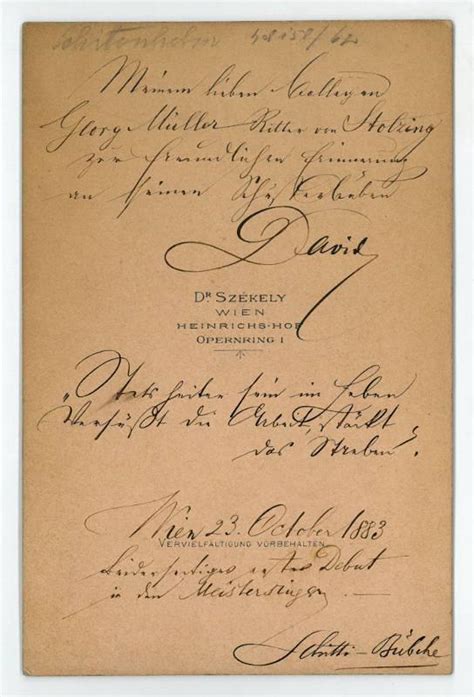 Schittenhelm
Meinem lieben Collegen
Georg Müller Ritter von Stolzing
zur freundlichen Erinnerung
an seinen Schusterbuben
David
Dr. SZÉKELY
WIEN
HEINRICHS-HOF
OPERNRING 1
„Stets heiter sein im Leben
Versüßt die Arbeit, stärkt
das Streben".
Wien 23. October 1883
VERVIELFÄLTIGUNG VORBEHALTEN
beiderseitiges erstes Debut
in den Meistersinger
Schütti-Bübche